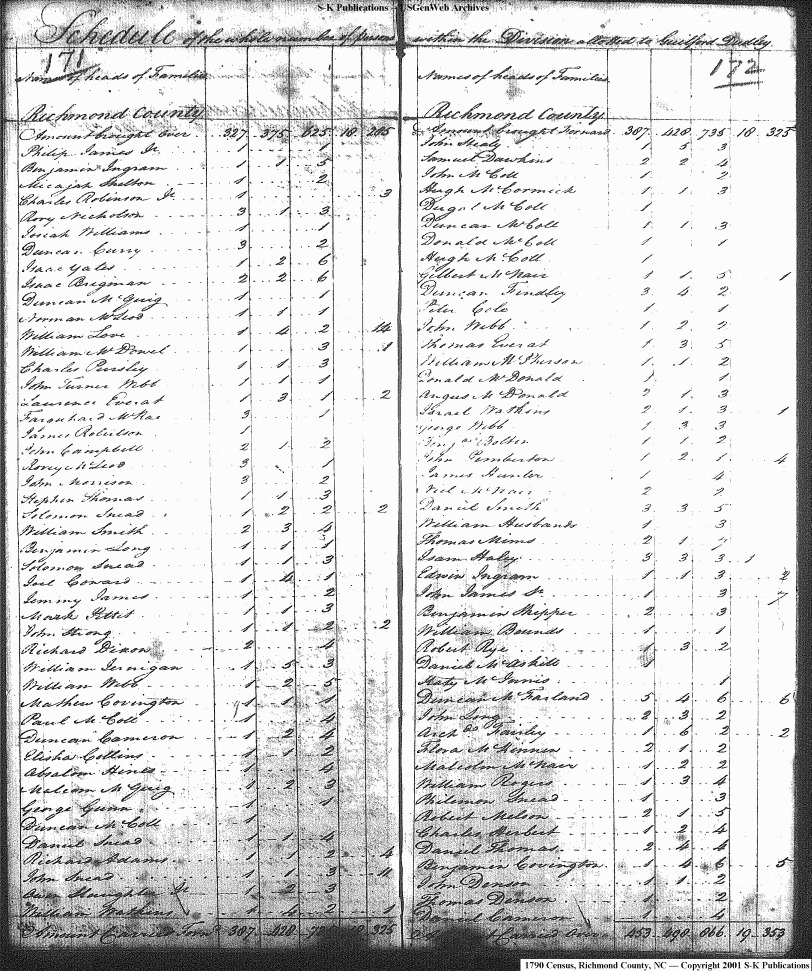 S-K Publications – USGenWeb Archives
Schedule of the whole number of persons within the Division allotted to Guilford Dudley
171
Names of heads of Families
Richmond County
Amount brought over 327 375 625 18 285
Philip James Jr 1 1
Benjamin Ingram 1 1 5
Micajah Shelton 1 2
Charles Robinson Jr 1 3
Rory Nicholson 3 1 3
Josiah Williams 1 1
Duncan Curry 3 2
Isaac Yates 1 2 6
Isaac Bregman 2 2 6
Duncan McGuig 1 1
Norman McLeod 1 1 1
William Love 1 4 2 14
William McDowel 1 3 1
Charles Pursley 1 1 3
John Turner Webb 1 1 1
Laurence Everat 1 3 1 2
Farquhard McRae 3 1
James Robertson 1
John Campbell 2 1 2
Rorey McLeod 3 1
John Morrison 3 2
Stephen Thomas 1 1 3
Solomon Snead 1 2 2 2
William Smith 2 3 4
Benjamin Long 1 1 1
Solomon Snead 1 1 3
Joel Coward 1 4 1
Jemmy James 1 2
Mark Pettit 1 1 3
John Strong 1 1 2 2
Richard Dixon 2 4
William Jernigan 1 5 3
William Webb 1 2 5
Mathew Covington 1 1 1
Paul McColl 1 4
Duncan Cameron 1 2 4
Elisha Collins 1 1 2
Absalom Hines 1 4
Malcom McGuig 1 2 3
George Gunn 1 1
Duncan McColl 1
Daniel Snead 1 1 4
Richard Adams 1 1 2 4
John Snead 1 1 3 11
Owen Slaughter Jr 1 2 3
William Watkins 1 4 2 1
Amount Carried Forwd 387 428 18 325
172
Names of heads of Families
Richmond County
Amount brought Forward 387 428 735 18 325
John Stealy 1 5 3
Samuel Dawkins 2 2 4
John McColl 1 2
Hugh McCormick 1 1 3
Dugal McColl 1
Duncan McColl 1 1 3
Donald McColl 1 1
Hugh McColl 1
Gilbert McNair 1 1 5 1
Duncan Findley 3 4 2
Peter Cole 1 1
John Webb 1 2 2
Thomas Everat 1 3 5
William McPherson 1 1 2
Donald McDonald 1 1
Angus McDonald 2 1 3
Israel Watkins 2 1 3 1
George Webb 1 3 3
Benjn Bolten 1 1 2
John Pemberton 1 2 1 4
James Hunter 1 4
Neil McNair 2 2
Daniel Smith 3 3 5
William Husbands 1 3
Thomas Mims 2 1 7
Isam Haley 3 3 3 1
Edwin Ingram 1 1 3 2
John James Sr 1 3 7
Benjamin Skipper 2 3
William Bounds 1 1
Robert Rye 1 3 2
Daniel McAskill 1
Katy McInnis 1
Duncan McFarland 5 4 6 6
John Long 2 3 2
Archd Fairley 1 6 2 2
Flora McKinnen 2 1 2
Malcolm McNair 1 2 2
William Rogers 1 3 4
Philemon Snead 1 3
Robert Melson 2 1 5
Charles Herbert 1 2 4
Daniel Thomas 2 4 4
Benjamin Covington 1 4 6 5
John Denson 1 1 2
Thomas Denson 1 2
Daniel Cameron 1 4
Carried Over 453 498 866 19 353
1790 Census, Richmond County, NC — Copyright 2001 S-K Publications